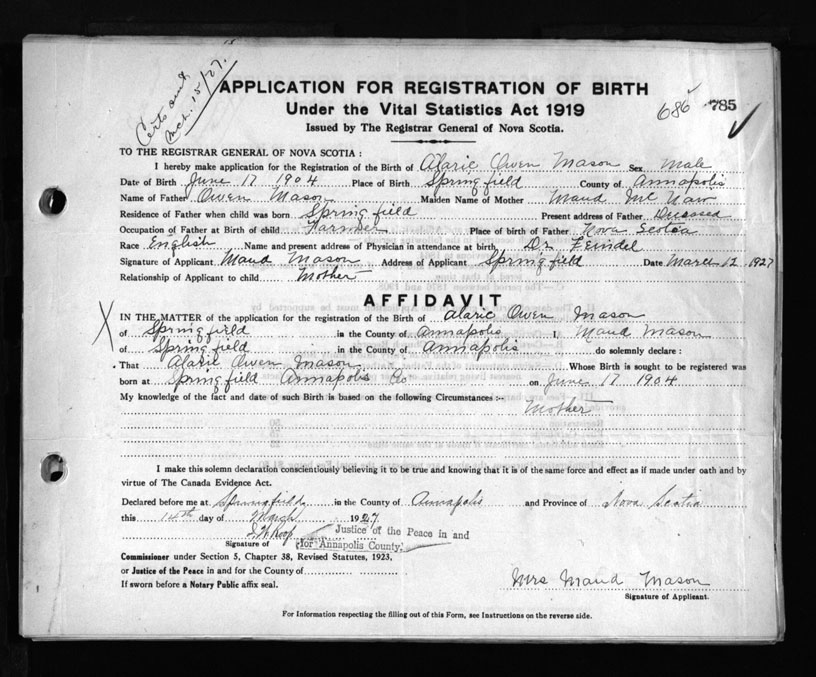 Certs and,
Mch. 15/27.
15
APPLICATION FOR REGISTRATION OF BIRTH
Under the Vital Statistics Act 1919
686 785
Issued by The Registrar General of Nova Scotia.
TO THE REGISTRAR GENERAL OF NOVA SCOTIA :
I hereby make application for the Registration of the Birth of Alaric Owen Mason Sex Male
Date of Birth June 17 1904 Place of Birth Springfield County of Annapolis
Name of Father Owen Mason Maiden Name of Mother Maud Mc Naw
Residence of Father when child was born Springfield Present address of Father Decessed
Occupation of Father at Birth of child Farmer Place of birth of Father Nova Scotia
Race English Name and present address of Physician in attendance at birth, Dr Feindel
Signature of Applicant Maud Mason Address of Applicant Springfield Date March 12 1927
Relationship of Applicant to child Mother
AFFIDAVIT
IN THE MATTER of the application for the registration of the Birth of Alaric Owen Mason
of Springfield in the County of Annapolis I, Maud Mason
of Springfield in the County of Annapolis do solemnly declare :
That Alaric Owen Mason Whose Birth is sought to be registered was
born at Springfield Annapolis Co on June 17 1904
My knowledge of the fact and date of such Birth is based on the following Circumstances :-
Mother
I make this solemn declaration conscientiously believing it to be true and knowing that it is of the same force and effect as if made under oath and by
virtue of The Canada Evidence Act.
Declared before me at Springfield in the County of Annapolis and Province of Nova Scotia
this 14th day of March 1927
Justice of the Peace in and
Signature of for Annapolis County,
Commissioner under Section 5, Chapter 38, Revised Statutes, 1923,
or Justice of the Peace in and for the County of
Mrs Maud Mason
If sworn before a Notary Public affix seal.
Signature of Applicant.
For Information respecting the filling out of this Form, see Instructions on the reverse side.